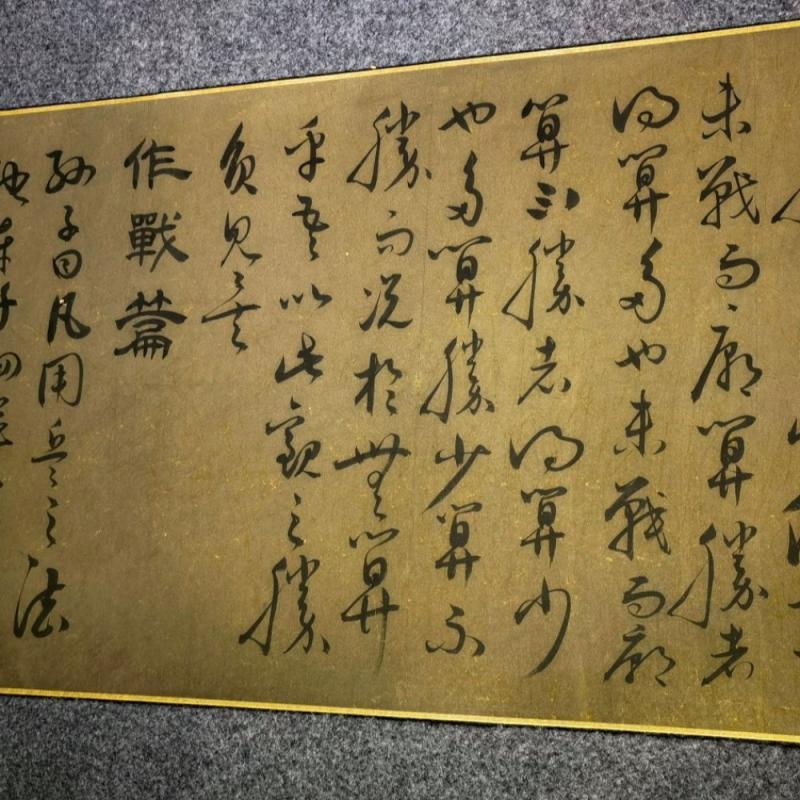 未戰而廟算勝者
得算多也未戰而廟
算不勝者得算少
也多算勝少算不
勝而況於無算
乎吾以此觀之勝
負見矣
作戰篇
孫子曰凡用兵之法
馳車千駟